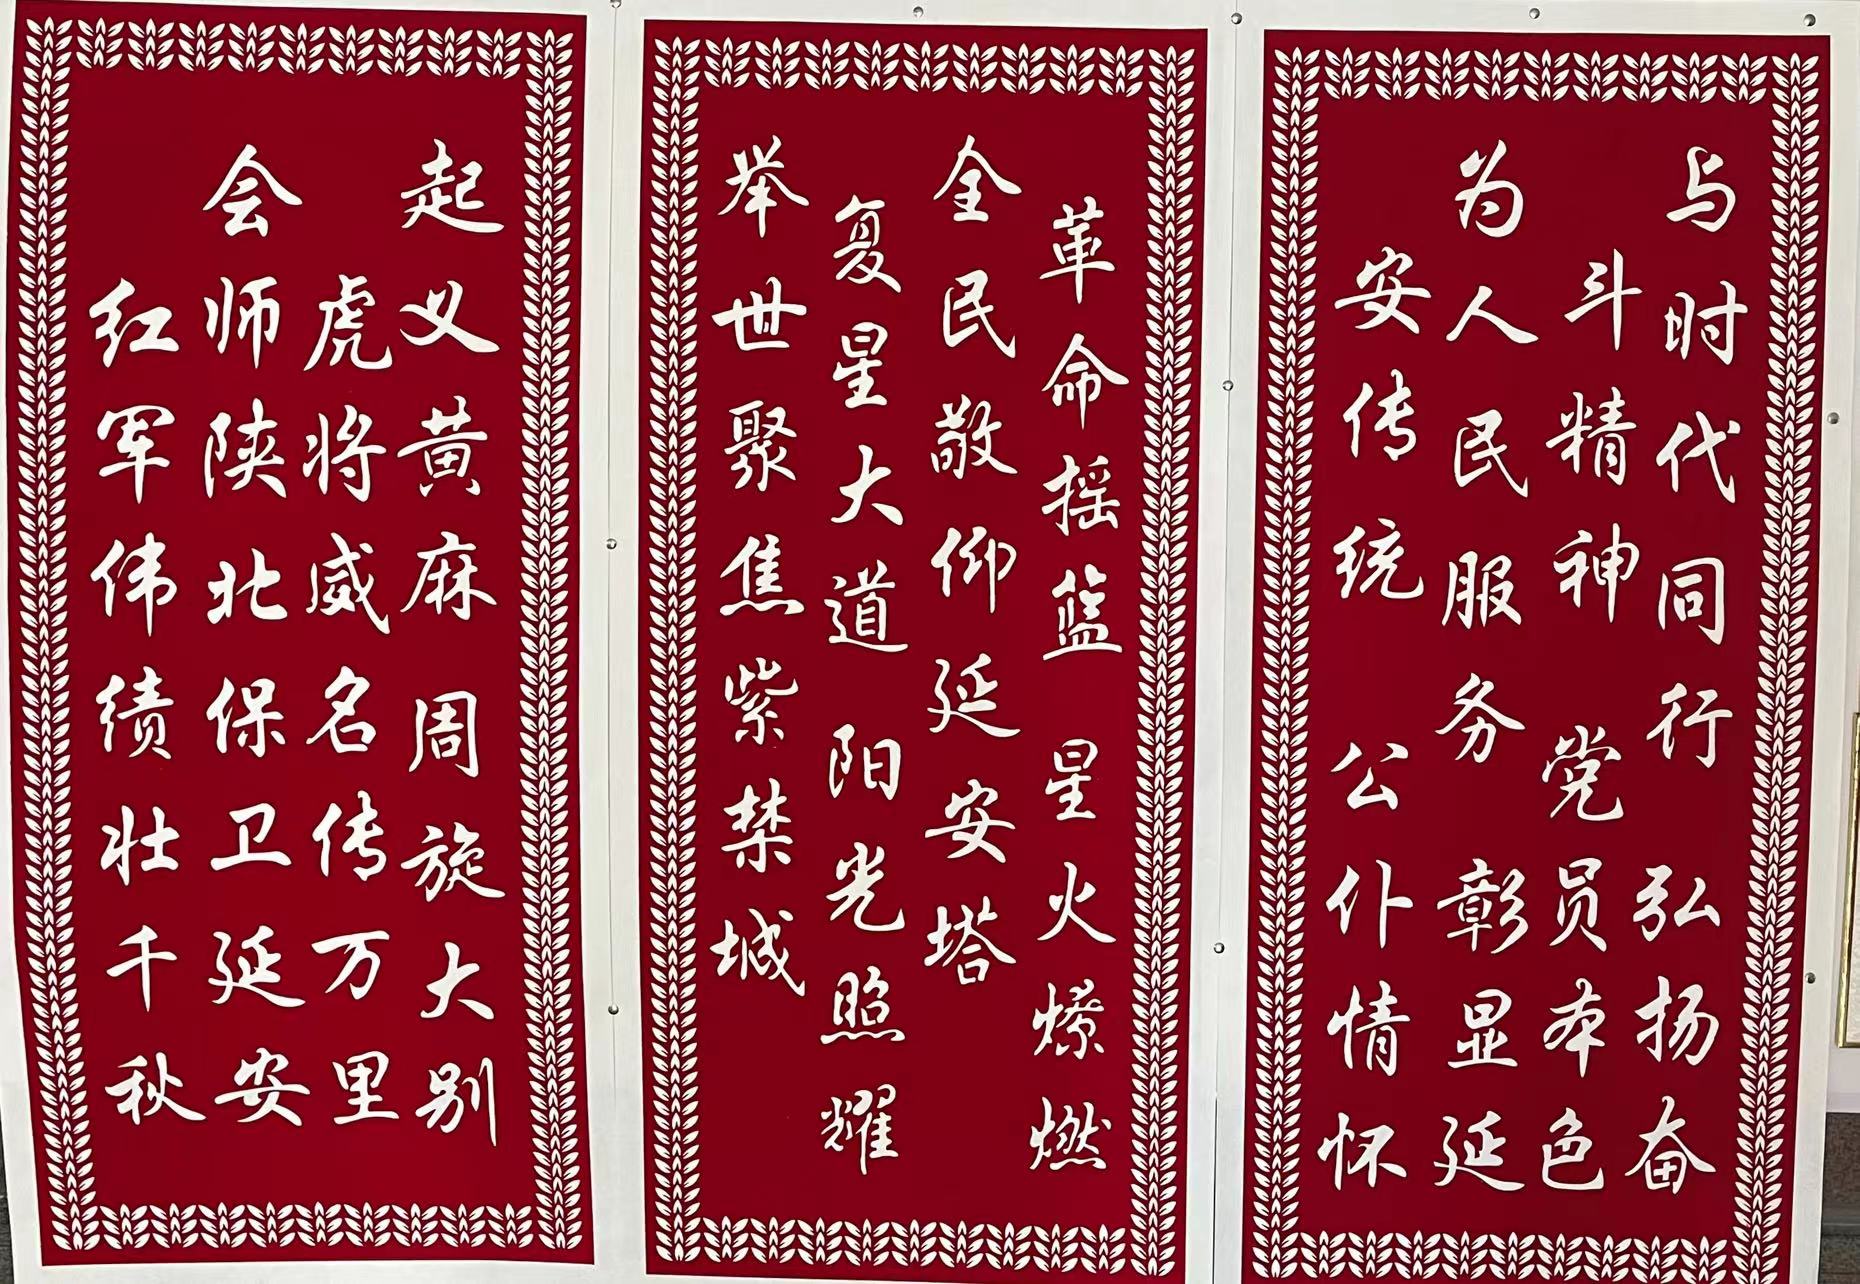 与时代同行 弘扬奋
斗精神 党员本色
为人民服务 彰显延
安传统 公仆情怀
革命摇篮 星火燎燃
全民敬仰延安塔
复星大道 阳光照耀
举世聚焦紫禁城
起义黄麻 周旋大别
虎将威名传万里
会师陕北保卫延安
红军伟绩壮千秋